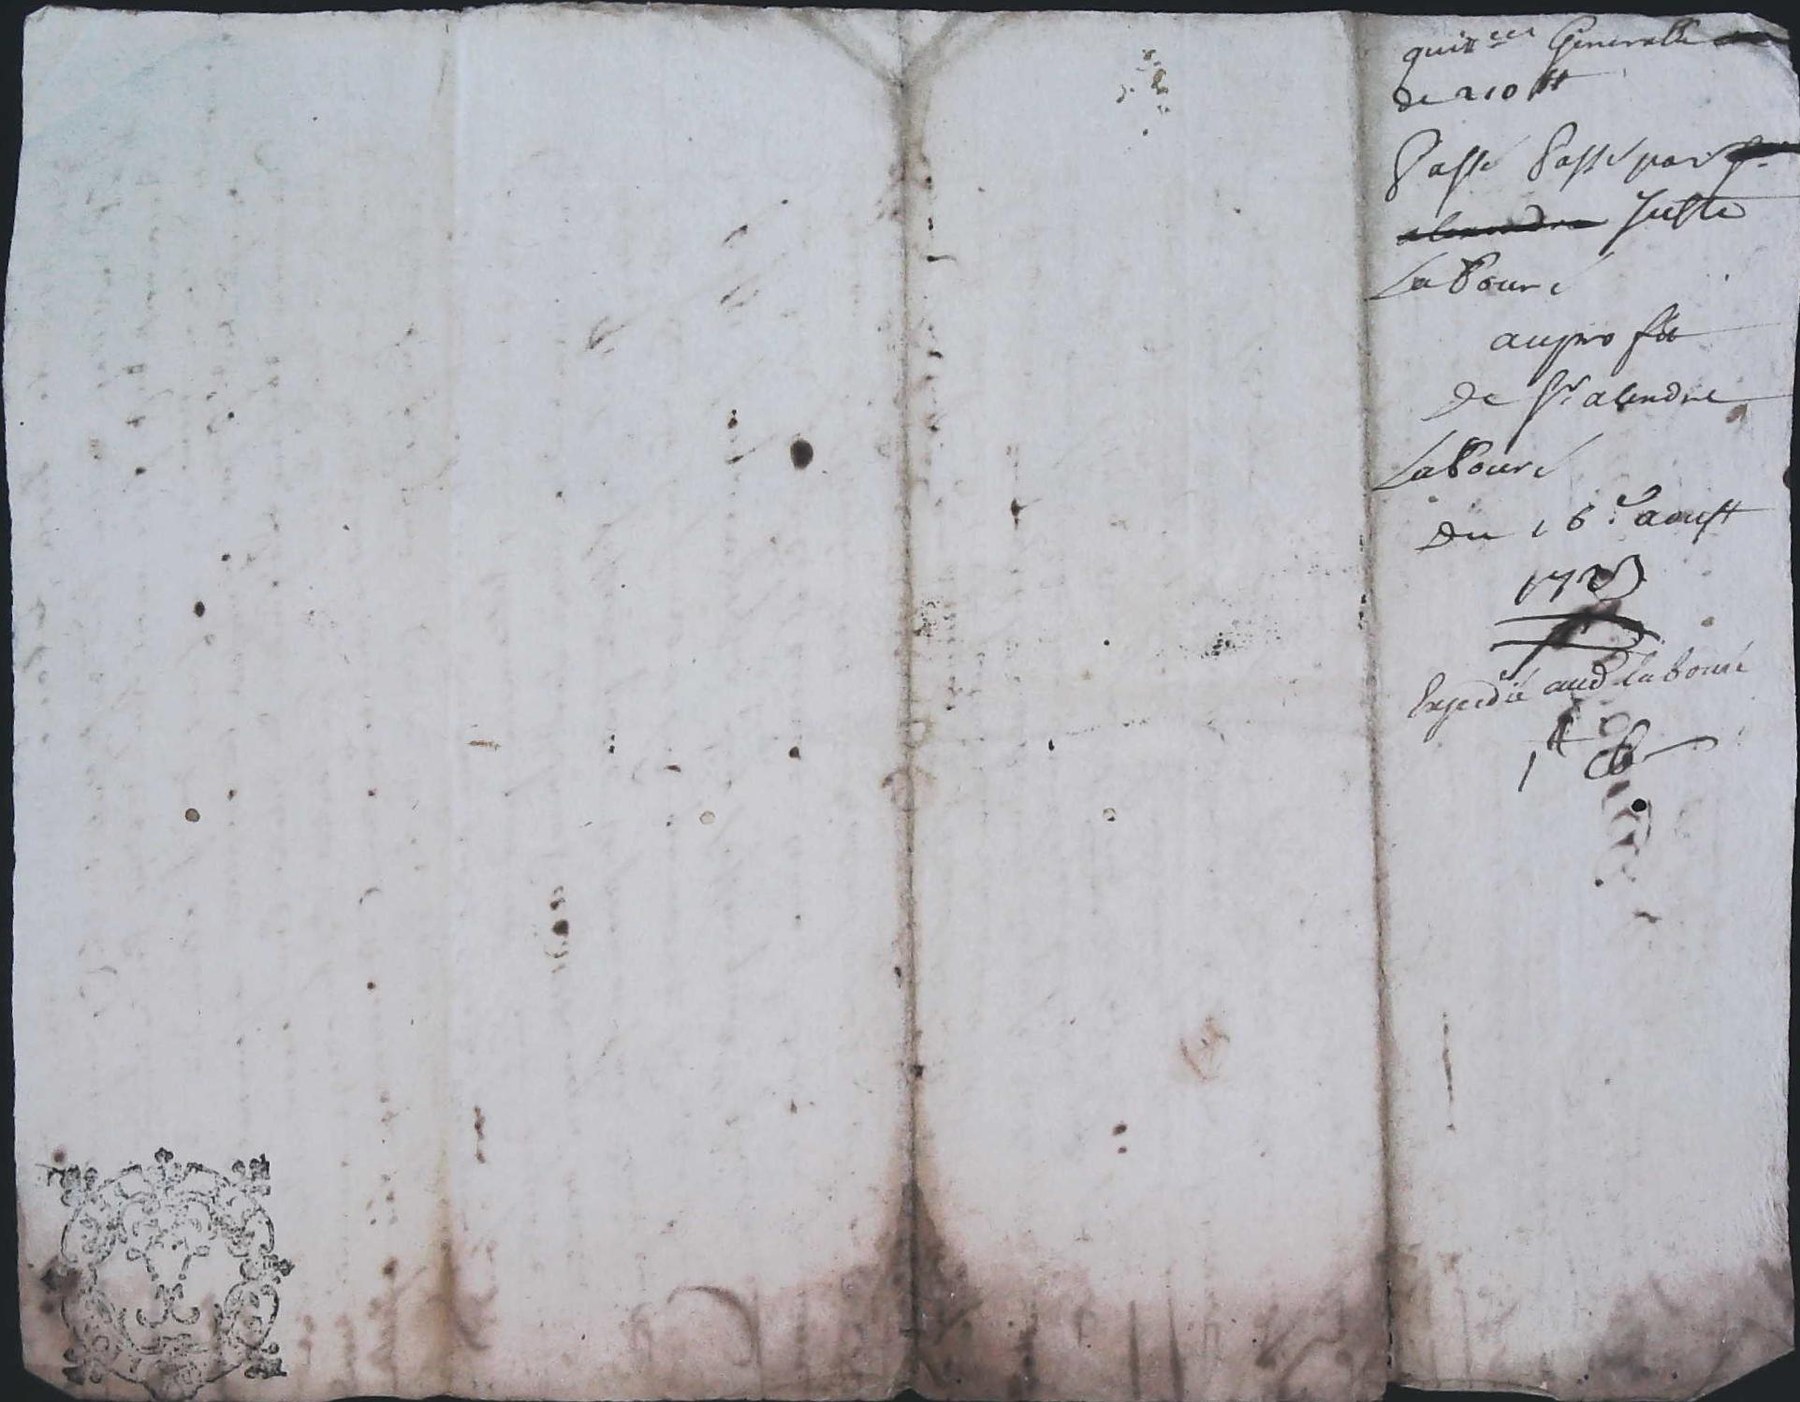 quitt.ce Generalle
de 210 ₶
Passé Passé par Sr
alexandre Juste
LaBouré
au profit
de Sr. alendre
LaBouré
Du 16e. aoust
1723
Expedié aud LaBouré